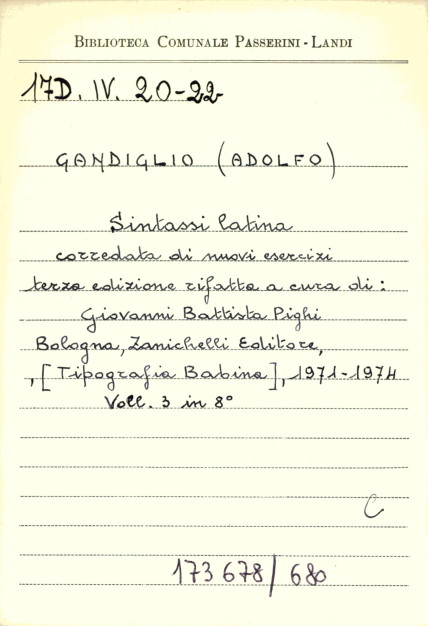 BIBLIOTECA COMUNALE PASSERINI-LANDI
17D. IV. 20-22
GANDIGLIO (ADOLFO)
Sintassi latina
corredata di nuovi esercizi
terza edizione rifatta a cura di:
Giovanni Battista Pighi
Bologna, Zanichelli Editore,
, [Tipografia Babina], 1971-1974
Voll. 3 in 8°
C
173678/680